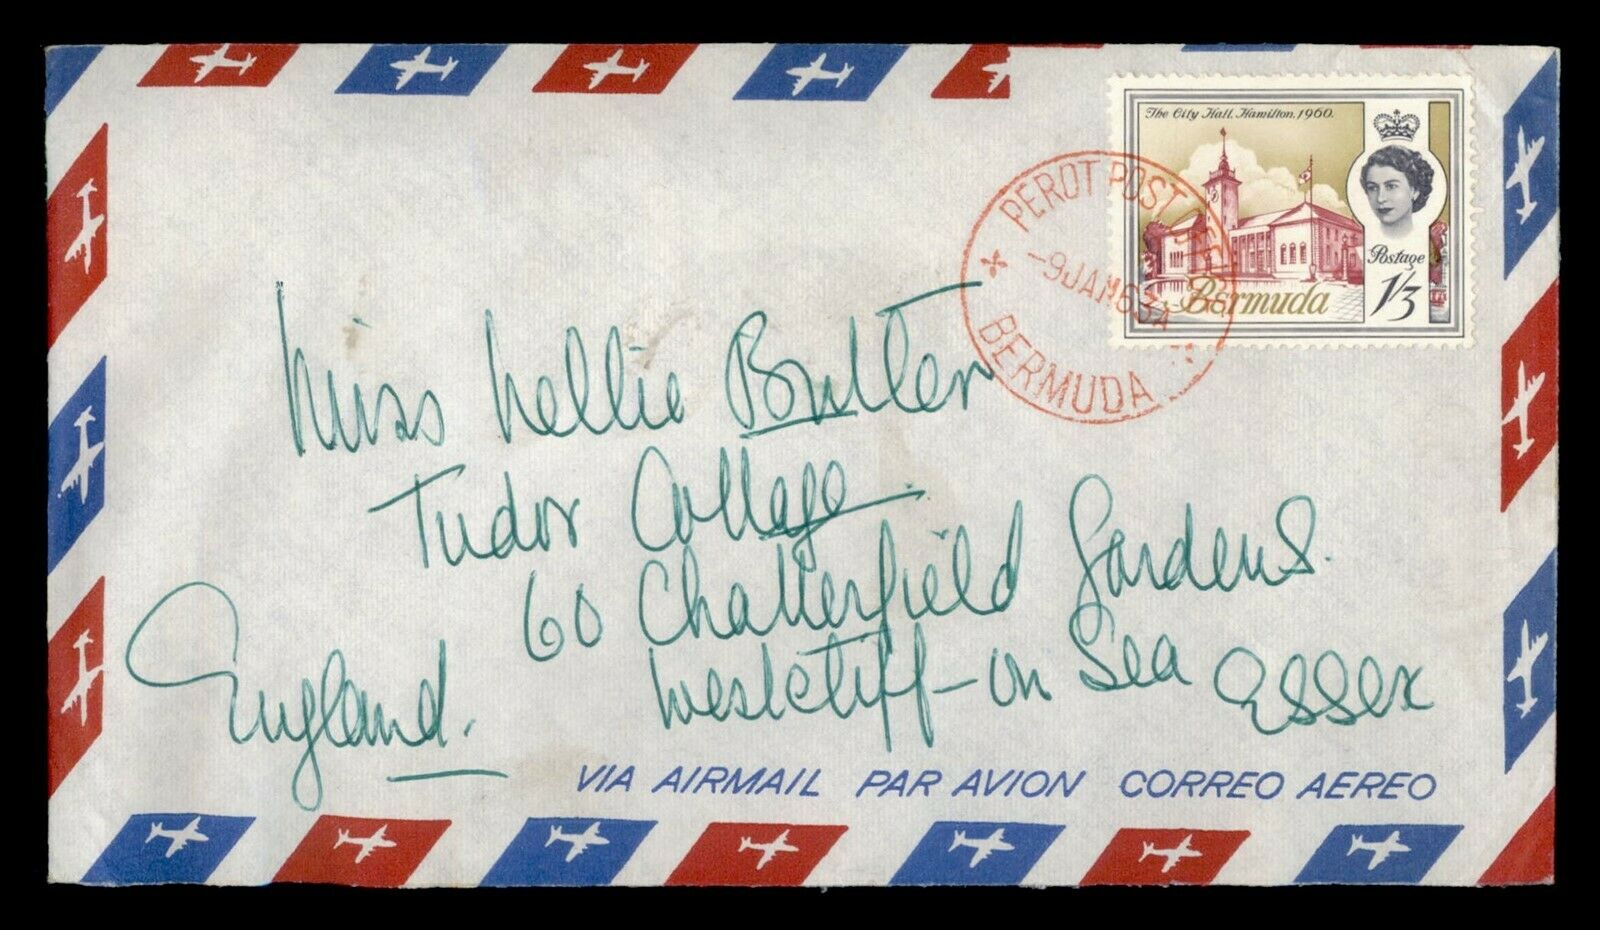 The City Hall, Hamilton, 1960.
Postage
1/3
Bermuda
PEROT POST OFFICE
-9 JAN 63
BERMUDA
Miss Nellie Butler
Tudor College
60 Chatterfield Gardens.
Westcliff-on Sea Essex
England.
VIA AIRMAIL PAR AVION CORREO AEREO